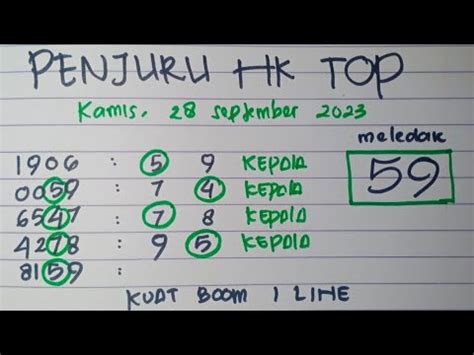 PENJURU HK TOP
Kamis, 28 september 2023
meledak
59
1906 : 5 9 KEPALA
0059 : 7 4 KEPALA
6547 : 7 8 KEPALA
4278 : 9 5 KEPALA
8159 :
KUAT BOOM 1 LINE